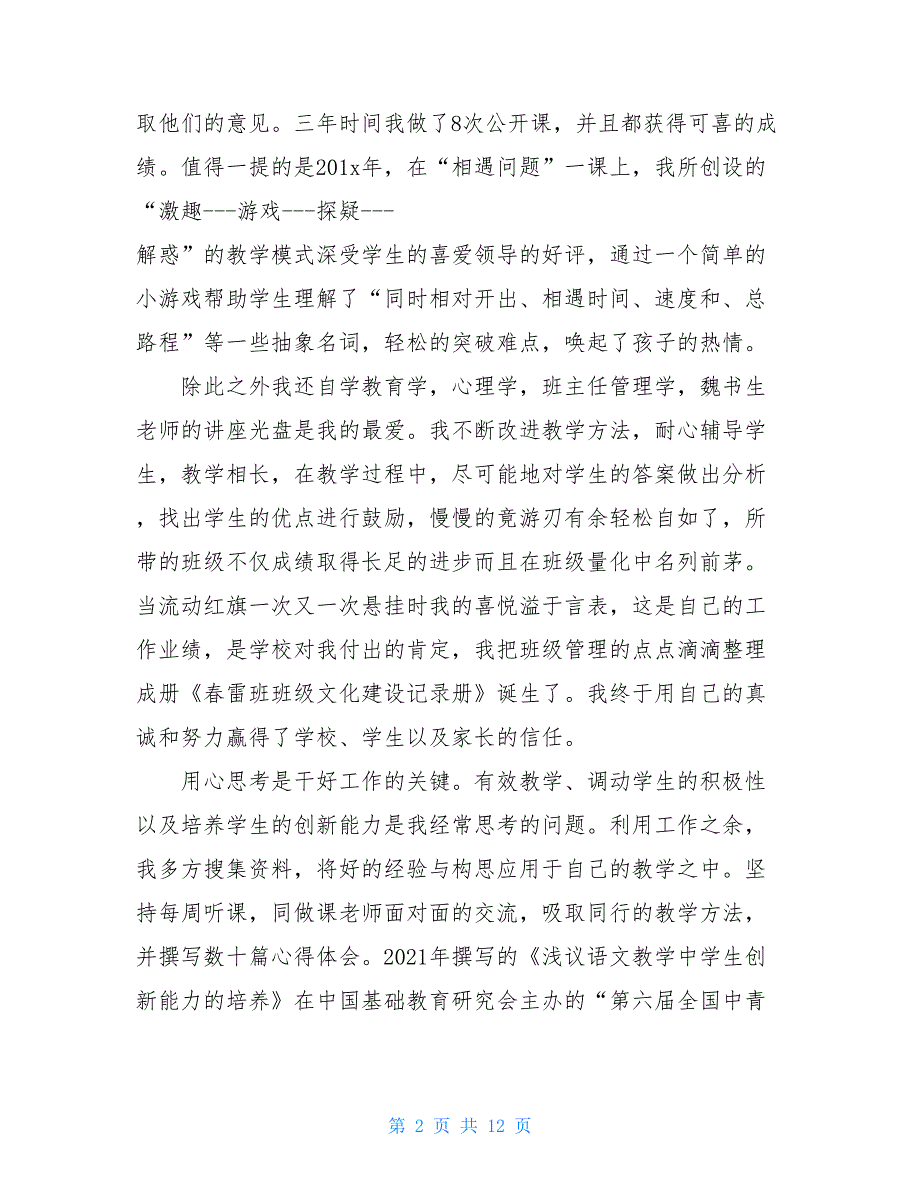 取他们的意见。三年时间我做了8次公开课，并且都获得可喜的成
绩。值得一提的是201x年，在“相遇问题”一课上，我所创设的
“激趣---游戏---探疑---
解惑”的教学模式深受学生的喜爱领导的好评，通过一个简单的
小游戏帮助学生理解了“同时相对开出、相遇时间、速度和、总
路程”等一些抽象名词，轻松的突破难点，唤起了孩子的热情。
除此之外我还自学教育学，心理学，班主任管理学，魏书生
老师的讲座光盘是我的最爱。我不断改进教学方法，耐心辅导学
生，教学相长，在教学过程中，尽可能地对学生的答案做出分析
，找出学生的优点进行鼓励，慢慢的竟游刃有余轻松自如了，所
带的班级不仅成绩取得长足的进步而且在班级量化中名列前茅。
当流动红旗一次又一次悬挂时我的喜悦溢于言表，这是自己的工
作业绩，是学校对我付出的肯定，我把班级管理的点点滴滴整理
成册《春雷班班级文化建设记录册》诞生了。我终于用自己的真
诚和努力赢得了学校、学生以及家长的信任。
用心思考是干好工作的关键。有效教学、调动学生的积极性
以及培养学生的创新能力是我经常思考的问题。利用工作之余，
我多方搜集资料，将好的经验与构思应用于自己的教学之中。坚
持每周听课，同做课老师面对面的交流，吸取同行的教学方法，
并撰写数十篇心得体会。2021年撰写的《浅议语文教学中学生创
新能力的培养》在中国基础教育研究会主办的“第六届全国中青
第 2 页 共 12 页